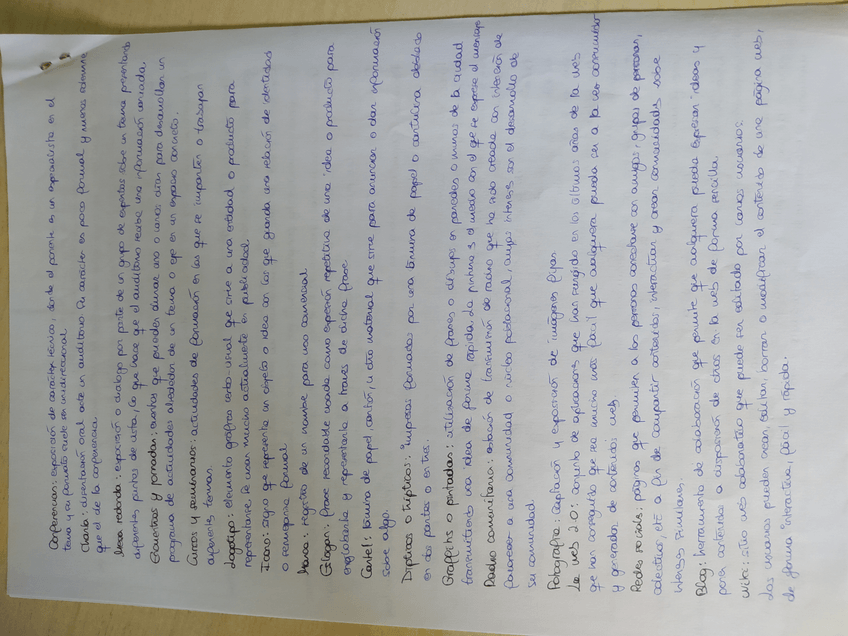 Conferencias: exposición de carácter técnico, donde el ponente es un especialista en el
tema y su formato suele ser unidireccional.
Charla: disertación oral ante un auditorio. Su carácter es poco formal y menos solemne
que el de la conferencia.
Mesa redonda: exposición o dialogo por parte de un grupo de expertos sobre un tema presentando
diferentes puntos de vista, lo que hace que el auditorio reciba una información variada.
Encuentros y jornadas: eventos que pueden durar uno o varios días para desarrollar un
programa de actividades alrededor de un tema o eje en un espacio concreto.
Cursos y seminarios: actividades de formación en las que se imparten o trabajan
diferentes temas.
Logotipo: elemento gráfico verbo-visual que sirve a una entidad o producto para
representarse. Se usan mucho actualmente en publicidad.
Icono: signo que representa un objeto o idea con los que guarda una relación de identidad
o semejanza formal.
Marca: registro de un nombre para uso comercial.
Eslogan: frase recordable usada como expresión repetitiva de una idea o producto para
englobarla y representarla a través de dicha frase.
Cartel: lámina de papel, cartón, u otro material que sirve para anunciar o dar información
sobre algo.
Dípticos o trípticos: impresos formados por una lámina de papel o cartulina doblado
en dos partes o en tres.
Graffitis o pintadas: utilización de frases o dibujos en paredes o muros de la ciudad
transmitiendo una idea de forma rápida. La pintura es el medio en el que se expresa el mensaje
Radio comunitaria: estación de transmisión de radio que ha sido creada con intención de
favorecer a una comunidad o núcleo poblacional, cuyos intereses son el desarrollo de
su comunidad.
Fotografía: captación y exposición de imágenes fijas
La web 2.0: conjunto de aplicaciones que han surgido en los últimos años de la web
que han conseguido que sea mucho más fácil que cualquiera pueda ser a la vez consumidor
y generador de contenidos web
Redes sociales: páginas que permiten a las personas conectarse con amigos, grupos de personas,
colectivos, etc a fin de compartir contenidos, interactuar y crear comunidades sobre
intereses similares.
Blog: herramienta de colaboración que permite que cualquiera pueda expresar ideas y
poner contenidos a disposición de otros en la web de forma sencilla.
Wiki: sitio web colaborativo que puede ser editado por varios usuarios.
Los usuarios pueden crear, editar, borrar o modificar el contenido de una página web,
de forma interactiva, fácil y rápida.